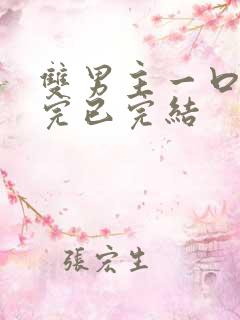 雙男主一口
完已完結
張宏生